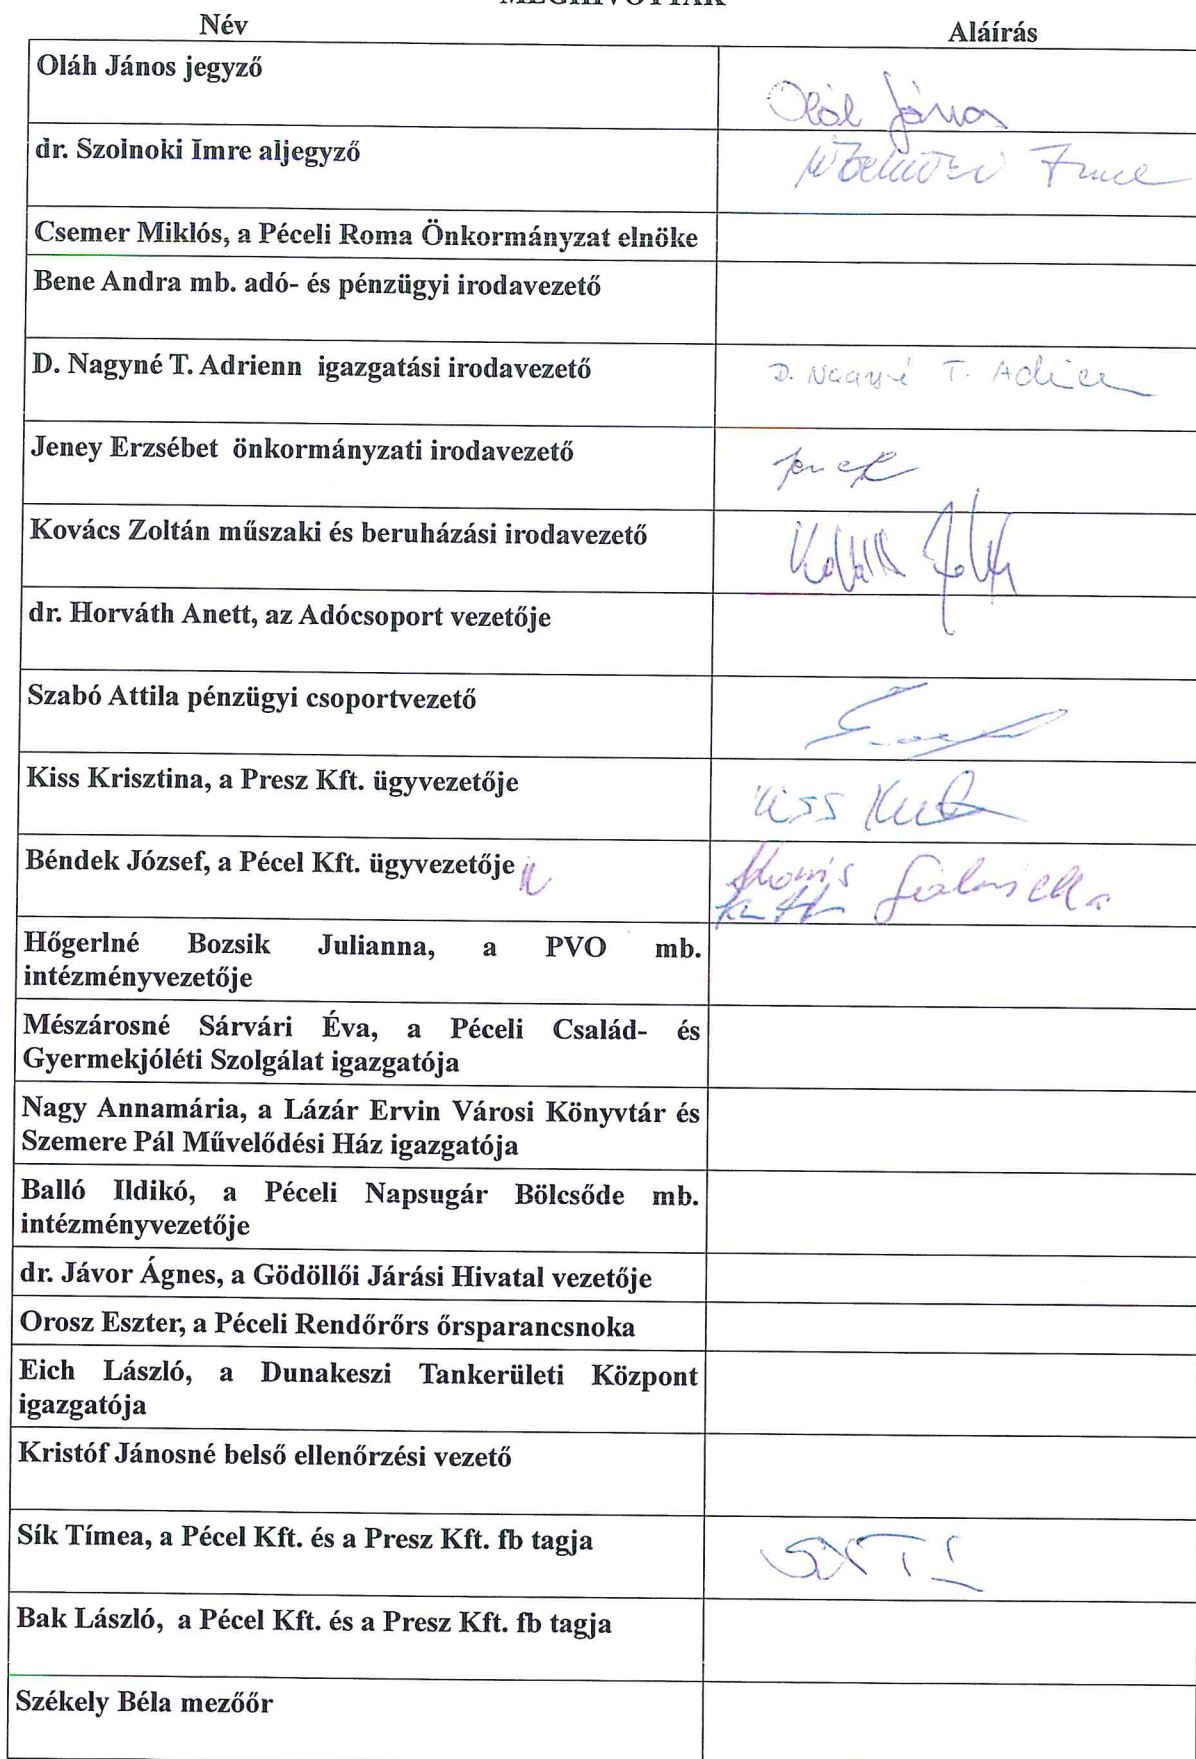 MEGHÍVOTTAK
Név Aláírás
Oláh János jegyző
Oláh János
dr. Szolnoki Imre aljegyző
Imre
Csemer Miklós, a Péceli Roma Önkormányzat elnöke
Bene Andra mb. adó- és pénzügyi irodavezető
D. Nagyné T. Adrienn igazgatási irodavezető
D. Nagyné T. Adrienn
Jeney Erzsébet önkormányzati irodavezető
Kovács Zoltán műszaki és beruházási irodavezető
Kovács Zoltán
dr. Horváth Anett, az Adócsoport vezetője
Szabó Attila pénzügyi csoportvezető
Kiss Krisztina, a Presz Kft. ügyvezetője
Kiss
Béndek József, a Pécel Kft. ügyvezetője
Hőgerlné Bozsik Julianna, a PVO mb.
intézményvezetője
Mészárosné Sárvári Éva, a Péceli Család- és
Gyermekjóléti Szolgálat igazgatója
Nagy Annamária, a Lázár Ervin Városi Könyvtár és
Szemere Pál Művelődési Ház igazgatója
Balló Ildikó, a Péceli Napsugár Bölcsőde mb.
intézményvezetője
dr. Jávor Ágnes, a Gödöllői Járási Hivatal vezetője
Orosz Eszter, a Péceli Rendőrőrs őrsparancsnoka
Eich László, a Dunakeszi Tankerületi Központ
igazgatója
Kristóf Jánosné belső ellenőrzési vezető
Sík Tímea, a Pécel Kft. és a Presz Kft. fb tagja
Bak László, a Pécel Kft. és a Presz Kft. fb tagja
Székely Béla mezőőr